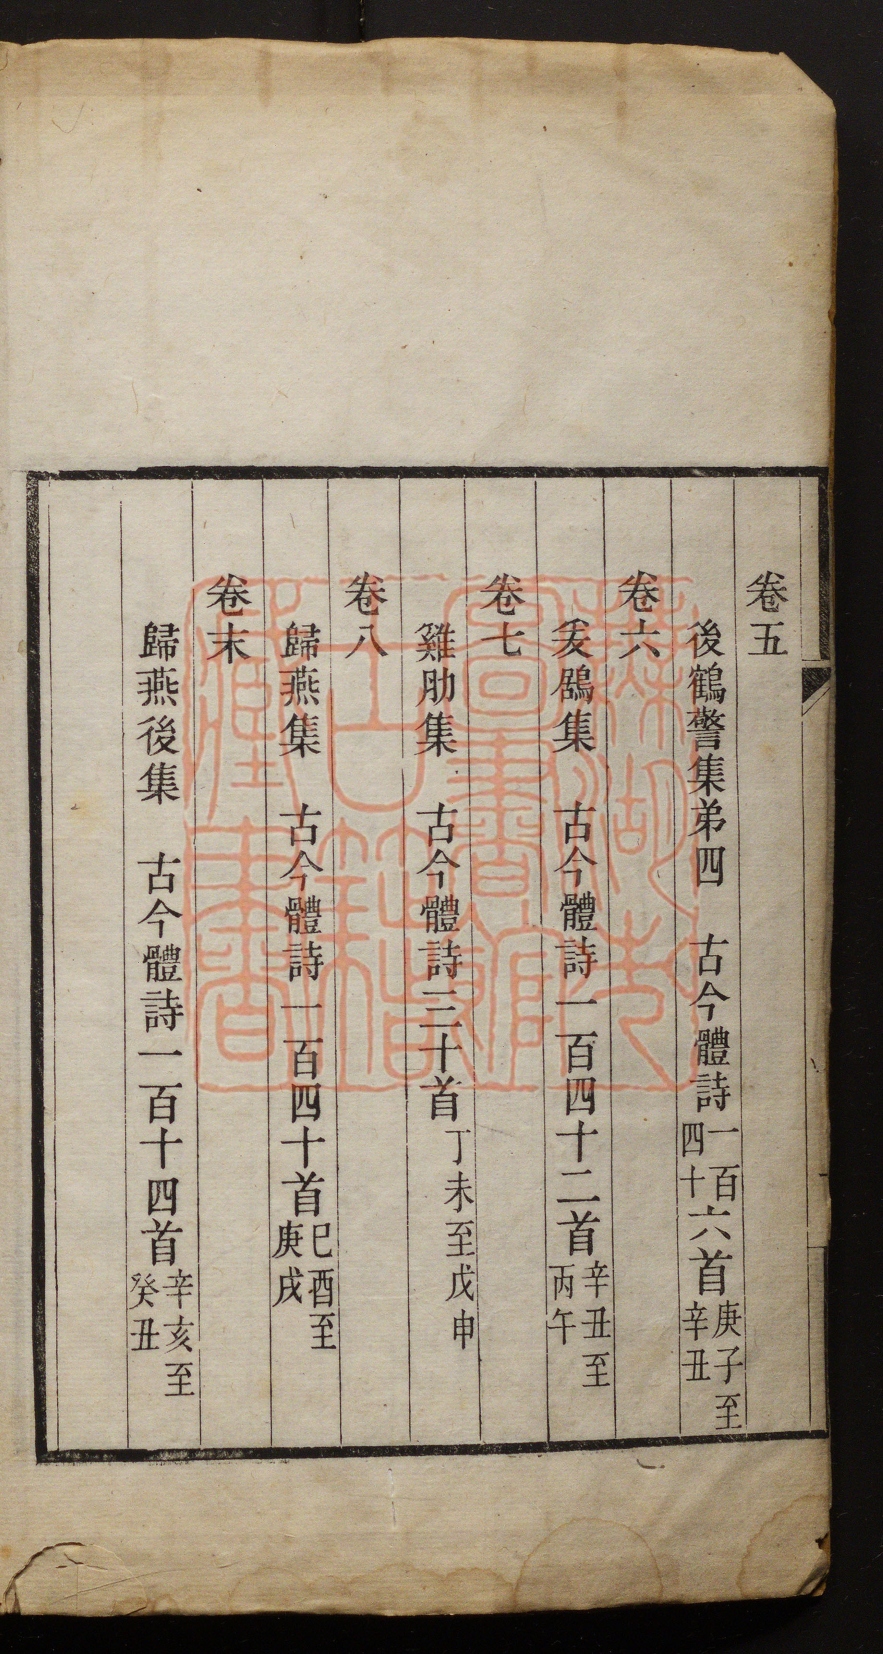 卷五
後鶴警集弟四　古今體詩一百四十六首庚子至辛丑
卷六
爰鶂集　古今體詩一百四十二首辛丑至丙午
卷七
雞肋集　古今體詩三十首丁未至戊申
卷八
歸燕集　古今體詩一百四十首巳酉至庚戌
卷末
歸燕後集　古今體詩一百十四首辛亥至癸丑
蕪湖市圖書館古籍藏書